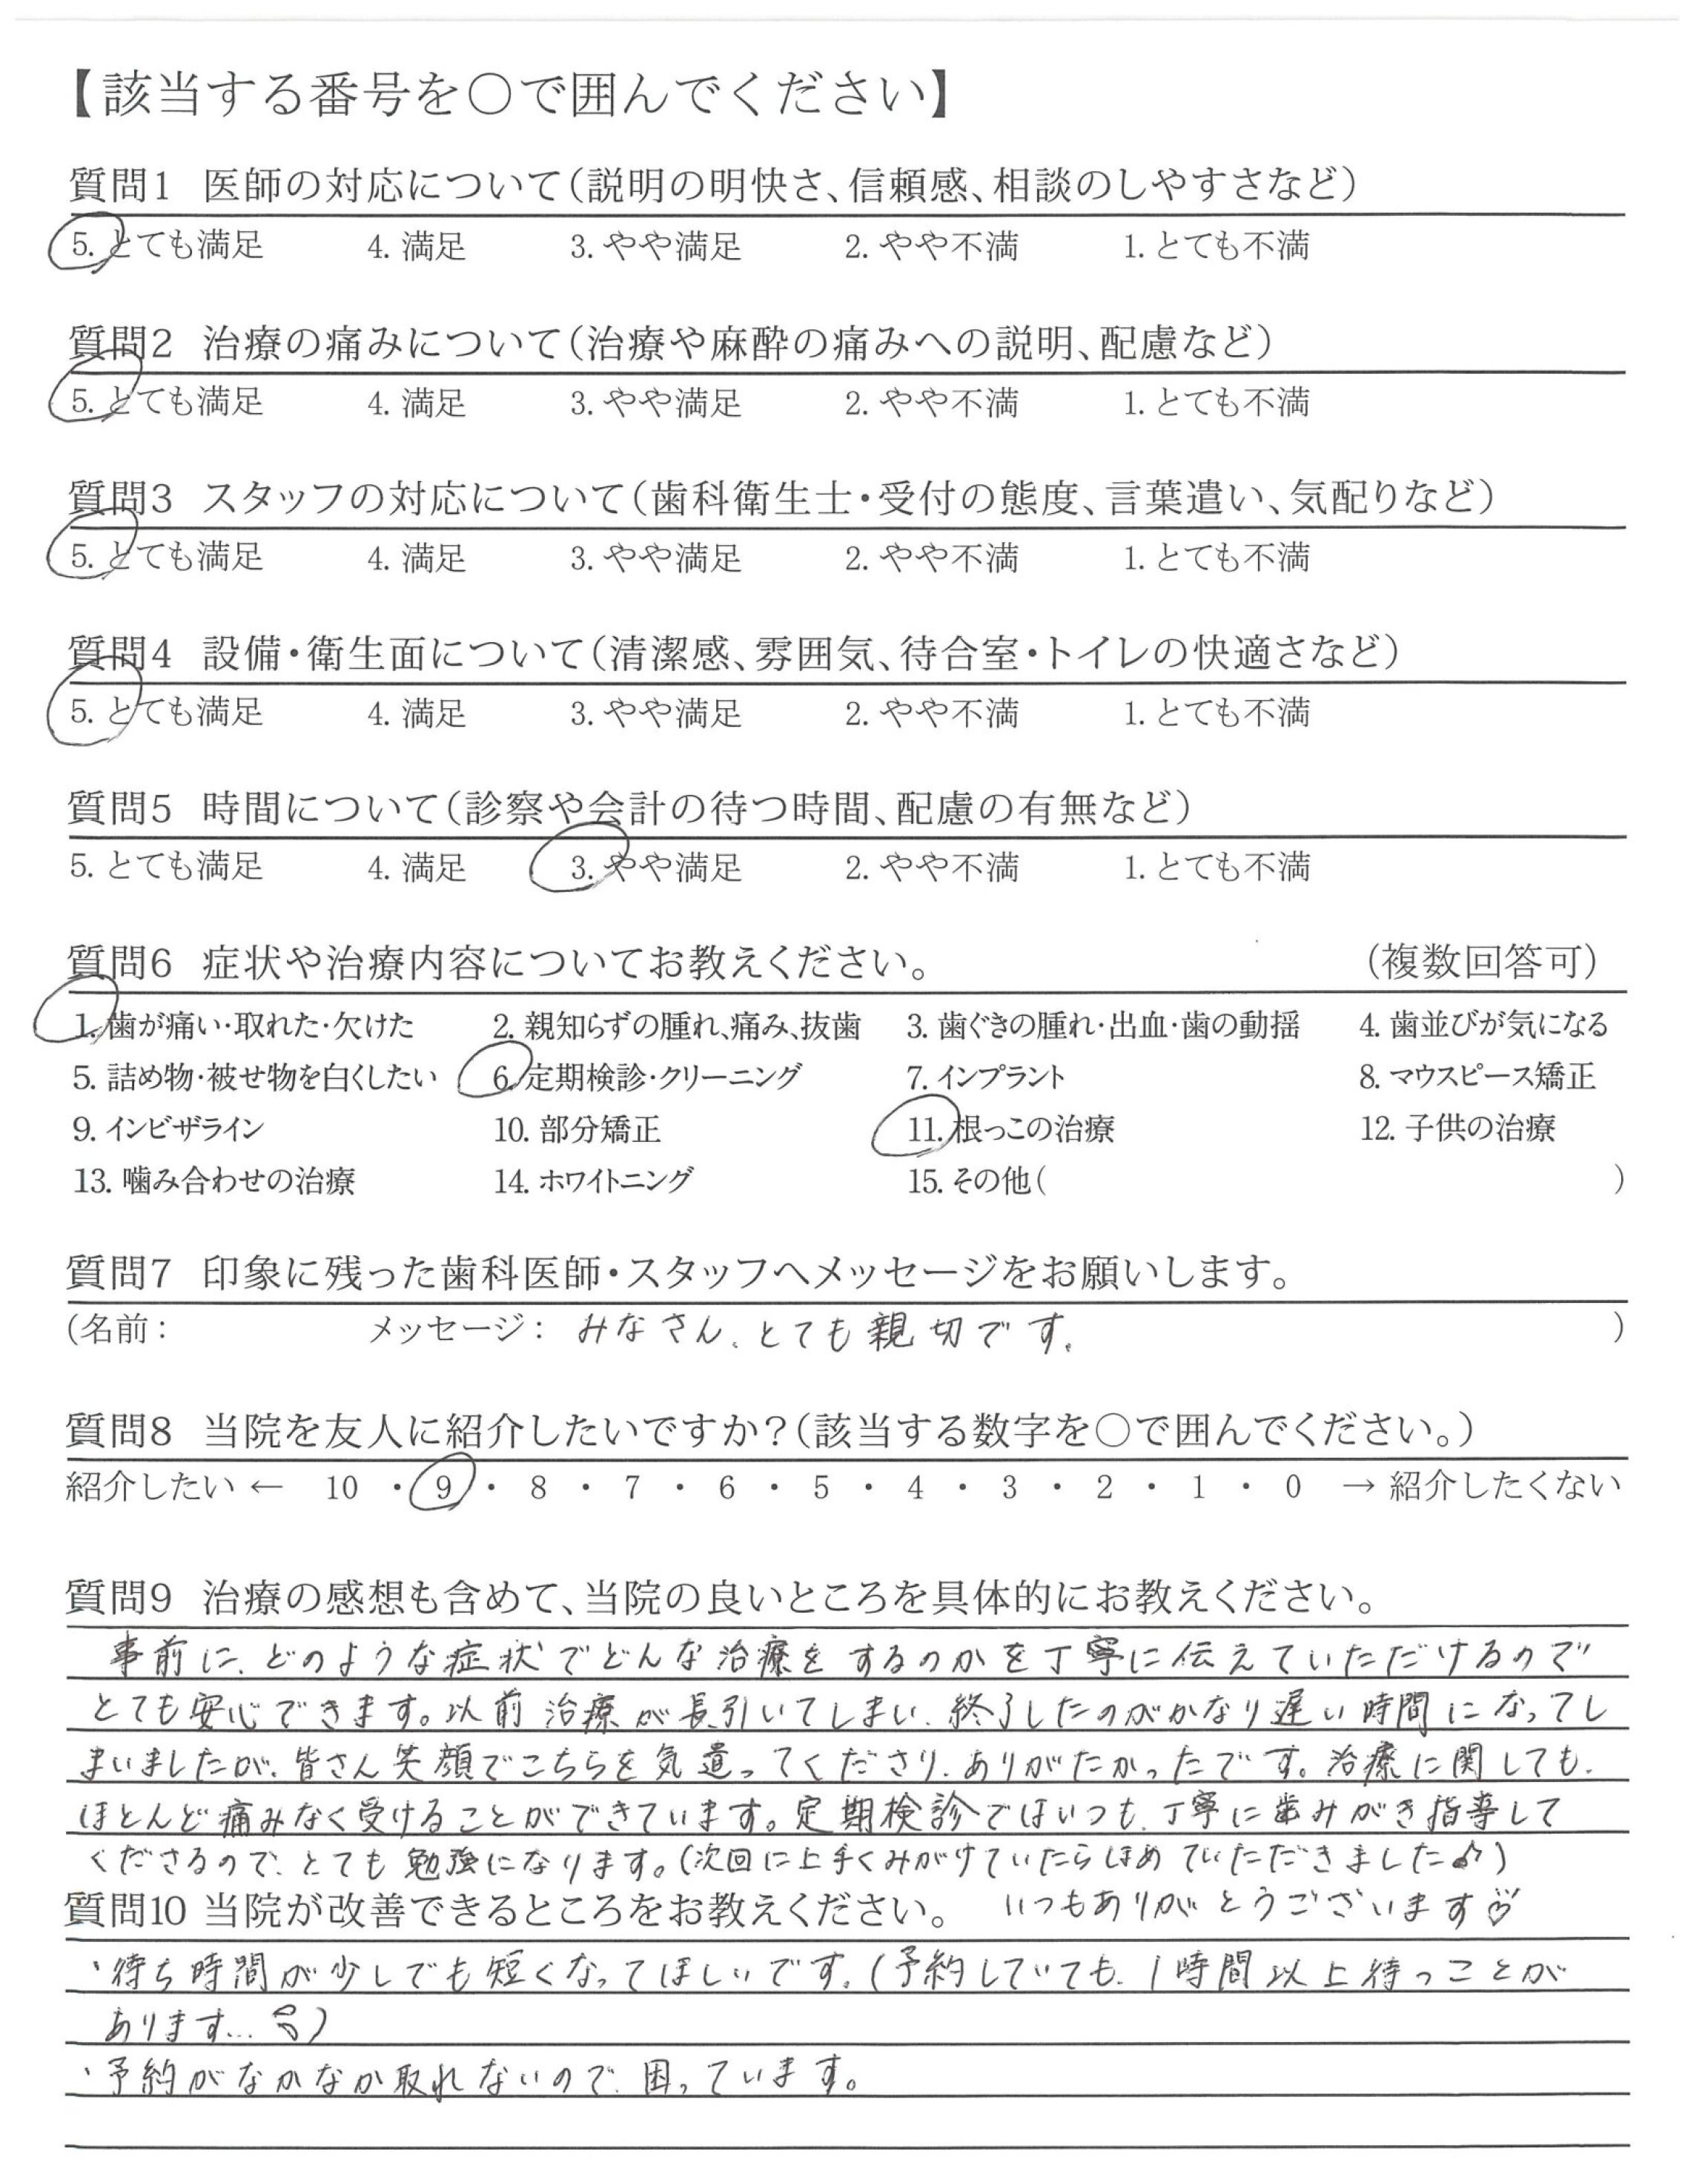 【該当する番号を○で囲んでください】
質問1 医師の対応について(説明の明快さ、信頼感、相談のしやすさなど)
5. とても満足 4. 満足 3. やや満足 2. やや不満 1. とても不満
質問2 治療の痛みについて(治療や麻酔の痛みへの説明、配慮など)
5. とても満足 4. 満足 3. やや満足 2. やや不満 1. とても不満
質問3 スタッフの対応について(歯科衛生士・受付の態度、言葉遣い、気配りなど)
5. とても満足 4. 満足 3. やや満足 2. やや不満 1. とても不満
質問4 設備・衛生面について(清潔感、雰囲気、待合室・トイレの快適さなど)
5. とても満足 4. 満足 3. やや満足 2. やや不満 1. とても不満
質問5 時間について(診察や会計の待つ時間、配慮の有無など)
5. とても満足 4. 満足 3. やや満足 2. やや不満 1. とても不満
質問6 症状や治療内容についてお教えください。 (複数回答可)
1. 歯が痛い・取れた・欠けた 2. 親知らずの腫れ、痛み、抜歯 3. 歯ぐきの腫れ・出血・歯の動揺 4. 歯並びが気になる
5. 詰め物・被せ物を白くしたい 6. 定期検診・クリーニング 7. インプラント 8. マウスピース矯正
9. インビザライン 10. 部分矯正 11. 根っこの治療 12. 子供の治療
13. 噛み合わせの治療 14. ホワイトニング 15. その他( )
質問7 印象に残った歯科医師・スタッフへメッセージをお願いします。
(名前： メッセージ： みなさん、とても親切です。 )
質問8 当院を友人に紹介したいですか?(該当する数字を○で囲んでください。)
紹介したい ← 10 ・ 9 ・ 8 ・ 7 ・ 6 ・ 5 ・ 4 ・ 3 ・ 2 ・ 1 ・ 0 → 紹介したくない
質問9 治療の感想も含めて、当院の良いところを具体的にお教えください。
事前に、どのような症状でどんな治療をするのかを丁寧に伝えていただけるので
とても安心できます。以前治療が長引いてしまい、終了したのがかなり遅い時間になってし
まいましたが、皆さん笑顔でこちらを気遣ってくださり、ありがたかったです。治療に関しても、
ほとんど痛みなく受けることができています。定期検診ではいつも、丁寧に歯みがき指導して
くださるので、とても勉強になります。(次回に上手くみがけていたらほめていただきました♪)
質問10 当院が改善できるところをお教えください。 いつもありがとうございます♡
・待ち時間が少しでも短くなってほしいです。(予約していても、1時間以上待つことが
あります…)
・予約がなかなか取れないので、困っています。